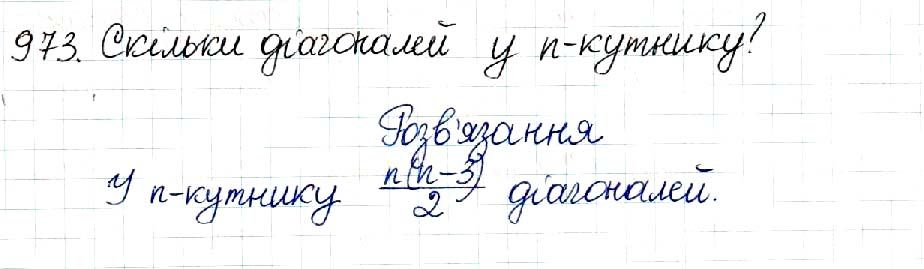 973. Скільки діагоналей у n-кутнику?
Розв'язання
У n-кутнику n(n-3)/2 діагоналей.